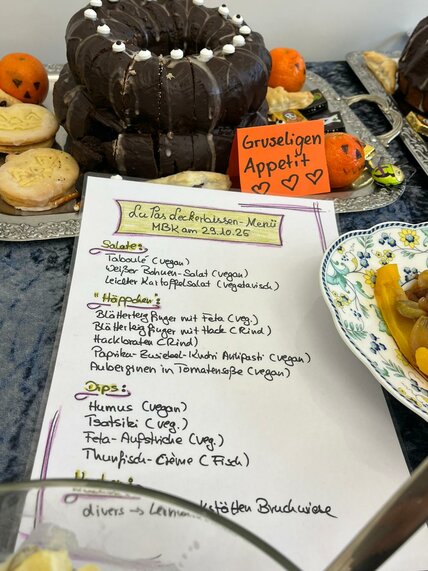 Gruseligen
Appetit
Lu Pás Leckerbissen-Menü
MBK am 29.10.25
Salate:
Taboulé (vegan)
Weißer Bohnen-Salat (vegan)
Leichter Kartoffelsalat (vegetarisch)
"Häppchen":
Blätterteigfinger mit Feta (veg.)
Blätterteigfinger mit Hack (Rind)
Hackbraten (Rind)
Paprika-Zwiebel- Antipasti (vegan)
Auberginen in Tomatensoße (vegan)
Dips:
Humus (vegan)
Tsatsiki (veg.)
Feta-Aufstriche (veg.)
Thunfisch-Crème (Fisch)
divers → Bruchwiese